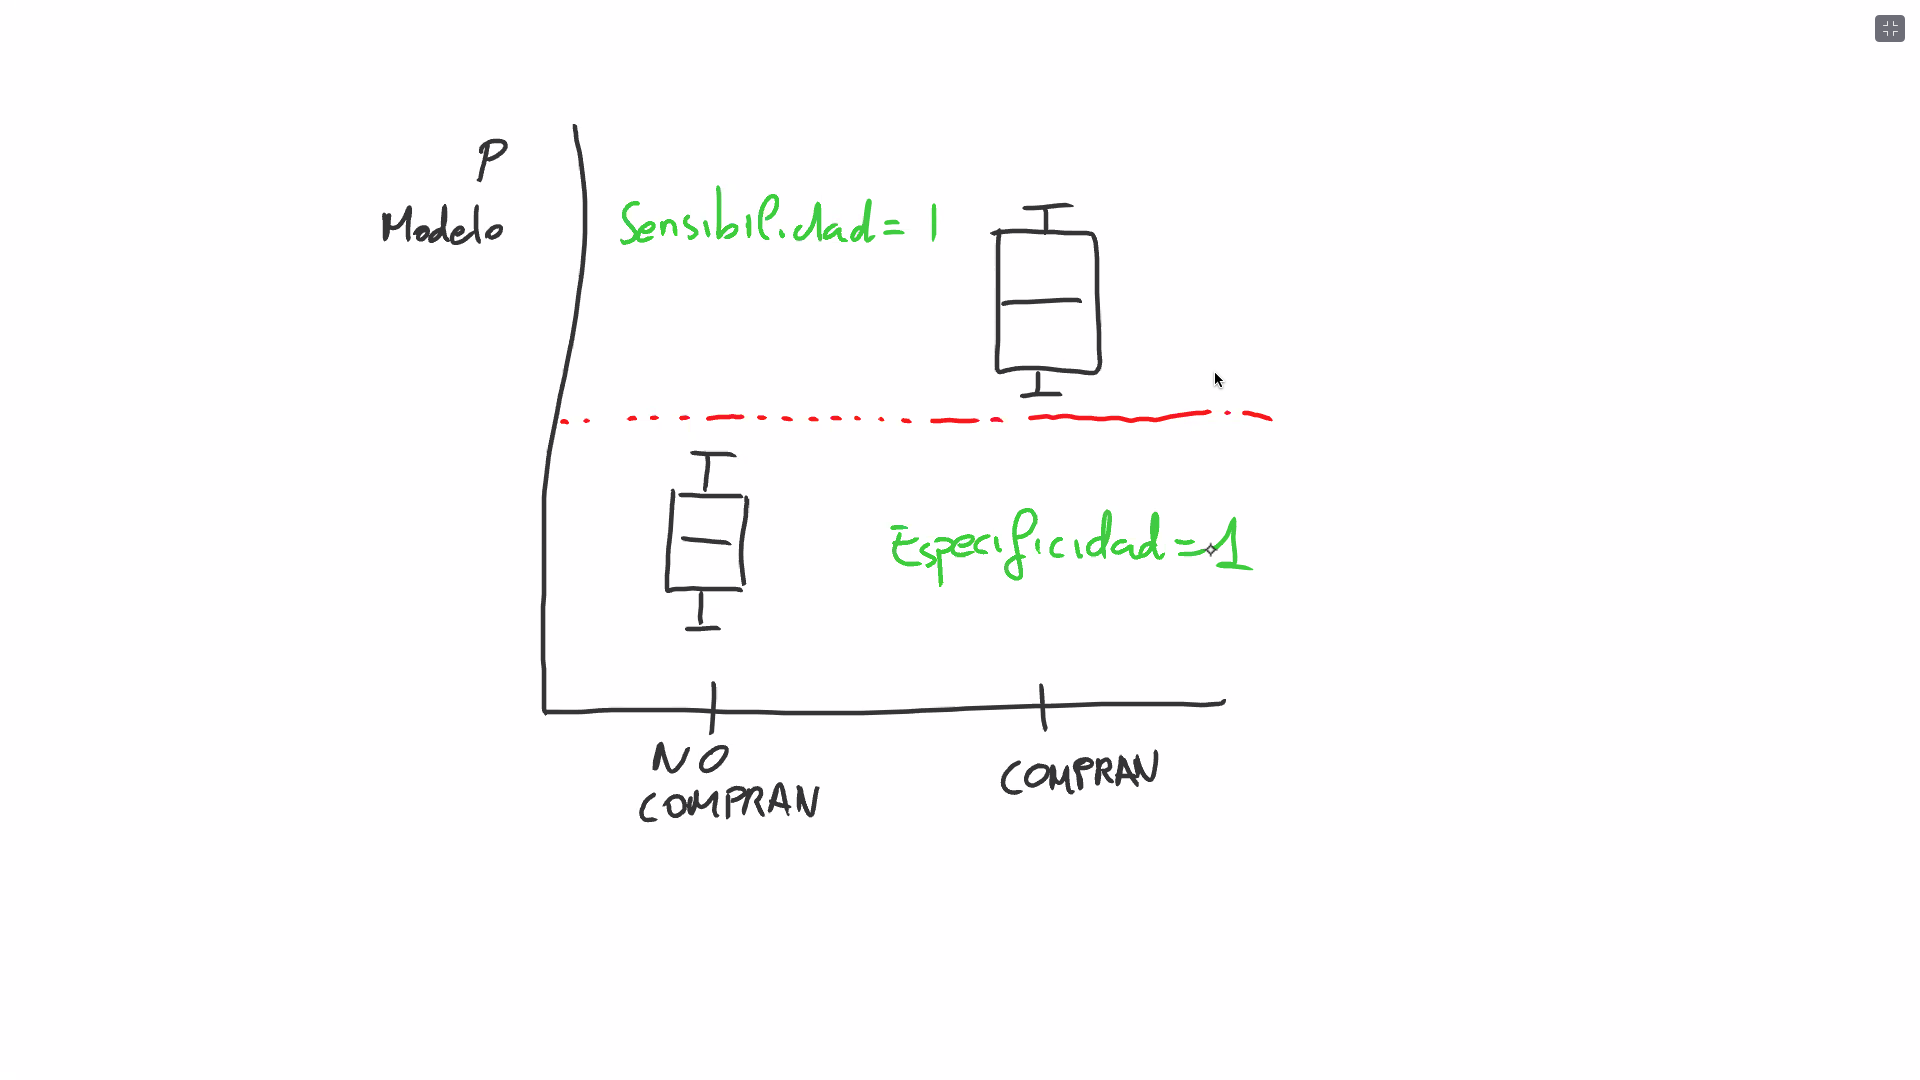 P
Modelo
Sensibilidad = 1
Especificidad = 1
NO
COMPRAN
COMPRAN